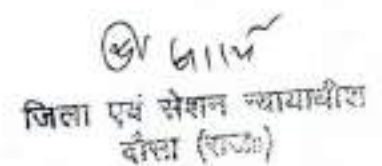 जिला एवं सेशन न्यायाधीश
दौसा (राज०)